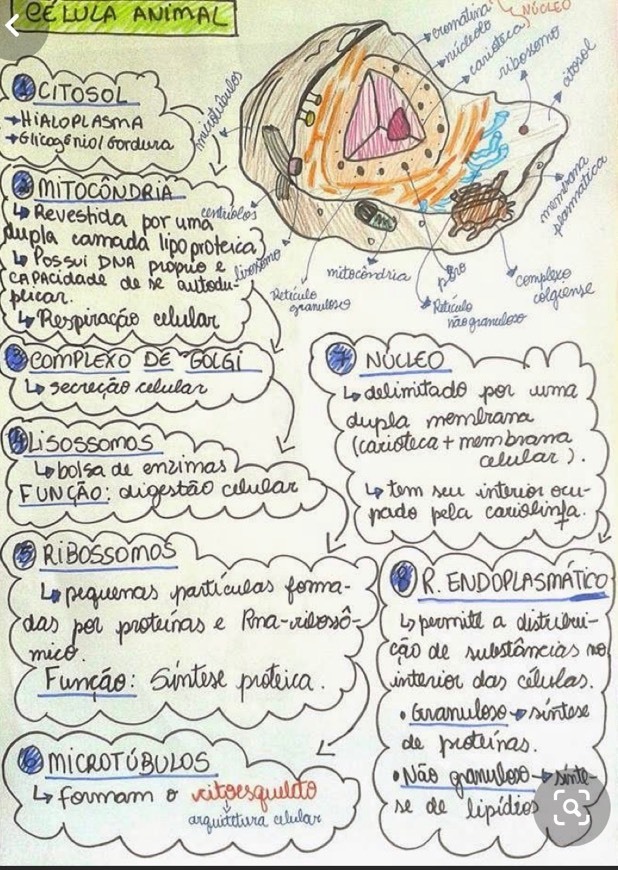 CÉLULA ANIMAL
NÚCLEO
cromatina
núcleolo
carioteca
ribossomo
citosol
membrana
plasmática
complexo
golgiense
poro
Retículo
não granuloso
mitocôndria
Retículo
granuloso
lisossomo
centríolos
microtúbulos
1 CITOSOL
→HIALOPLASMA
→Glicogênio/Gordura
2 MITOCÔNDRIA
↳ Revestida por uma
dupla camada lipo proteica
↳ POSSUI DNA PROPRIO E
CAPACIDADE DE SE AUTODU-
plicar.
↳ Respiração celular
3 COMPLEXO DE GOLGI
↳ secreção celular
4 LISOSSOMOS
↳ bolsa de enzimas
FUNÇÃO: digestão celular
5 RIBOSSOMOS
↳ pequenas partículas forma-
das por proteínas e Rna-ribossô-
mico.
Função: Síntese proteica.
6 MICROTÚBULOS
↳ formam o citoesqueleto
arquitetura celular
7 NÚCLEO
↳ delimitado por uma
dupla membrana
(carioteca + membrana
celular).
↳ tem seu interior ocu-
pado pela cariolinfa.
8 R. ENDOPLASMÁTICO
↳ permite a distribui-
ção de substâncias no
interior das células.
• Granuloso → síntese
de proteínas.
• Não granuloso → sínte-
se de lipídios